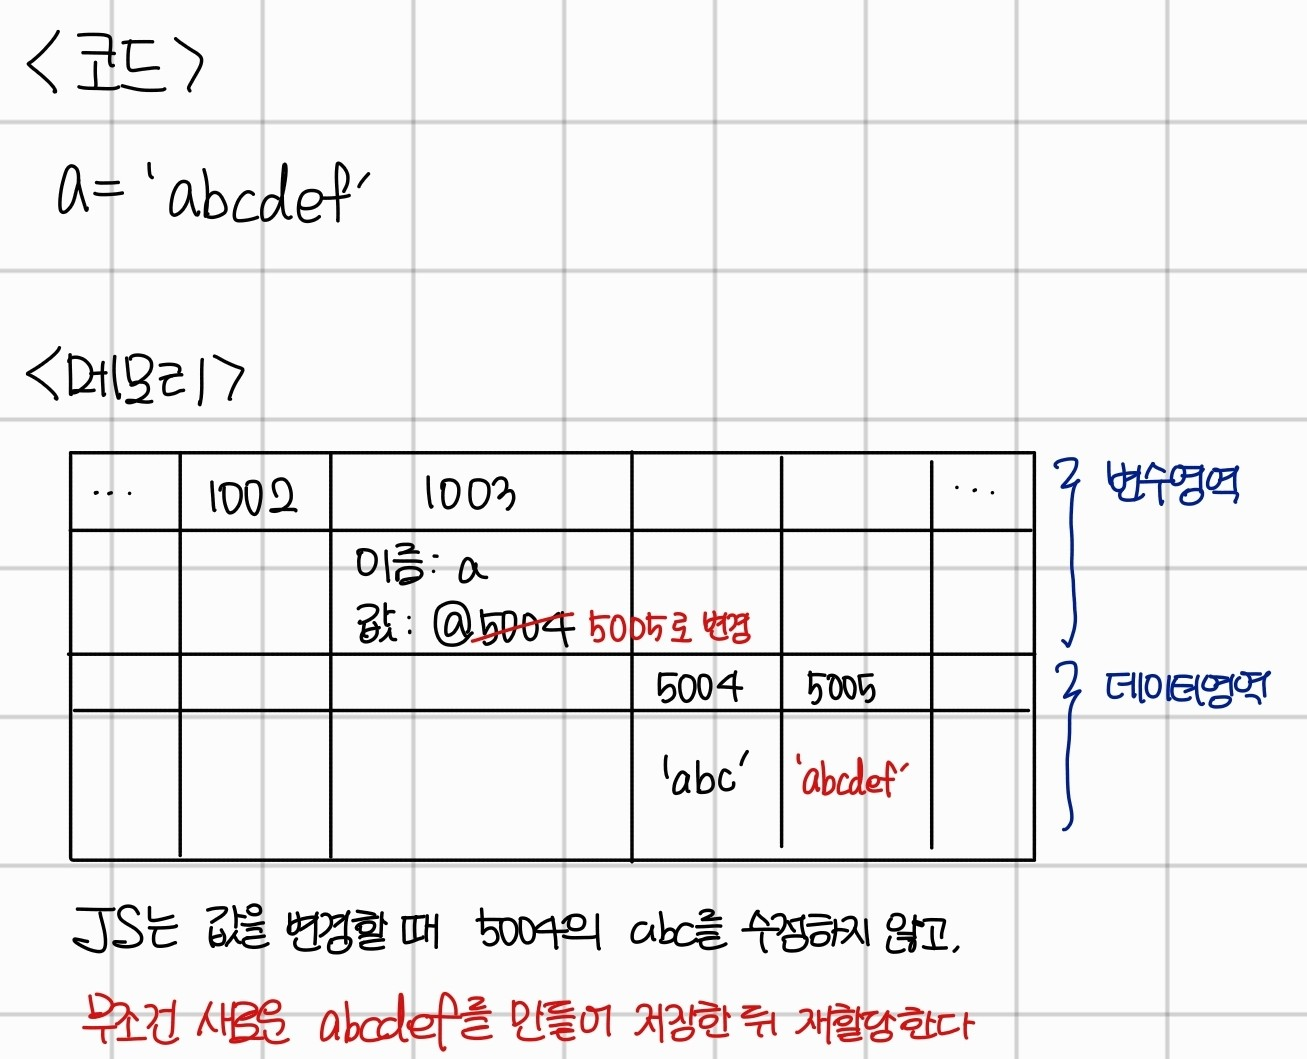 <코드>
a= 'abcdef'
<메모리>
... 1002 1003 ... 변수영역
이름: a
값: @5004 5005로 변경
5004 5005 데이터영역
'abc' 'abcdef'
JS는 값을 변경할 때 5004의 abc를 수정하지 않고,
무조건 새로운 abcdef를 만들어 저장한 뒤 재할당한다